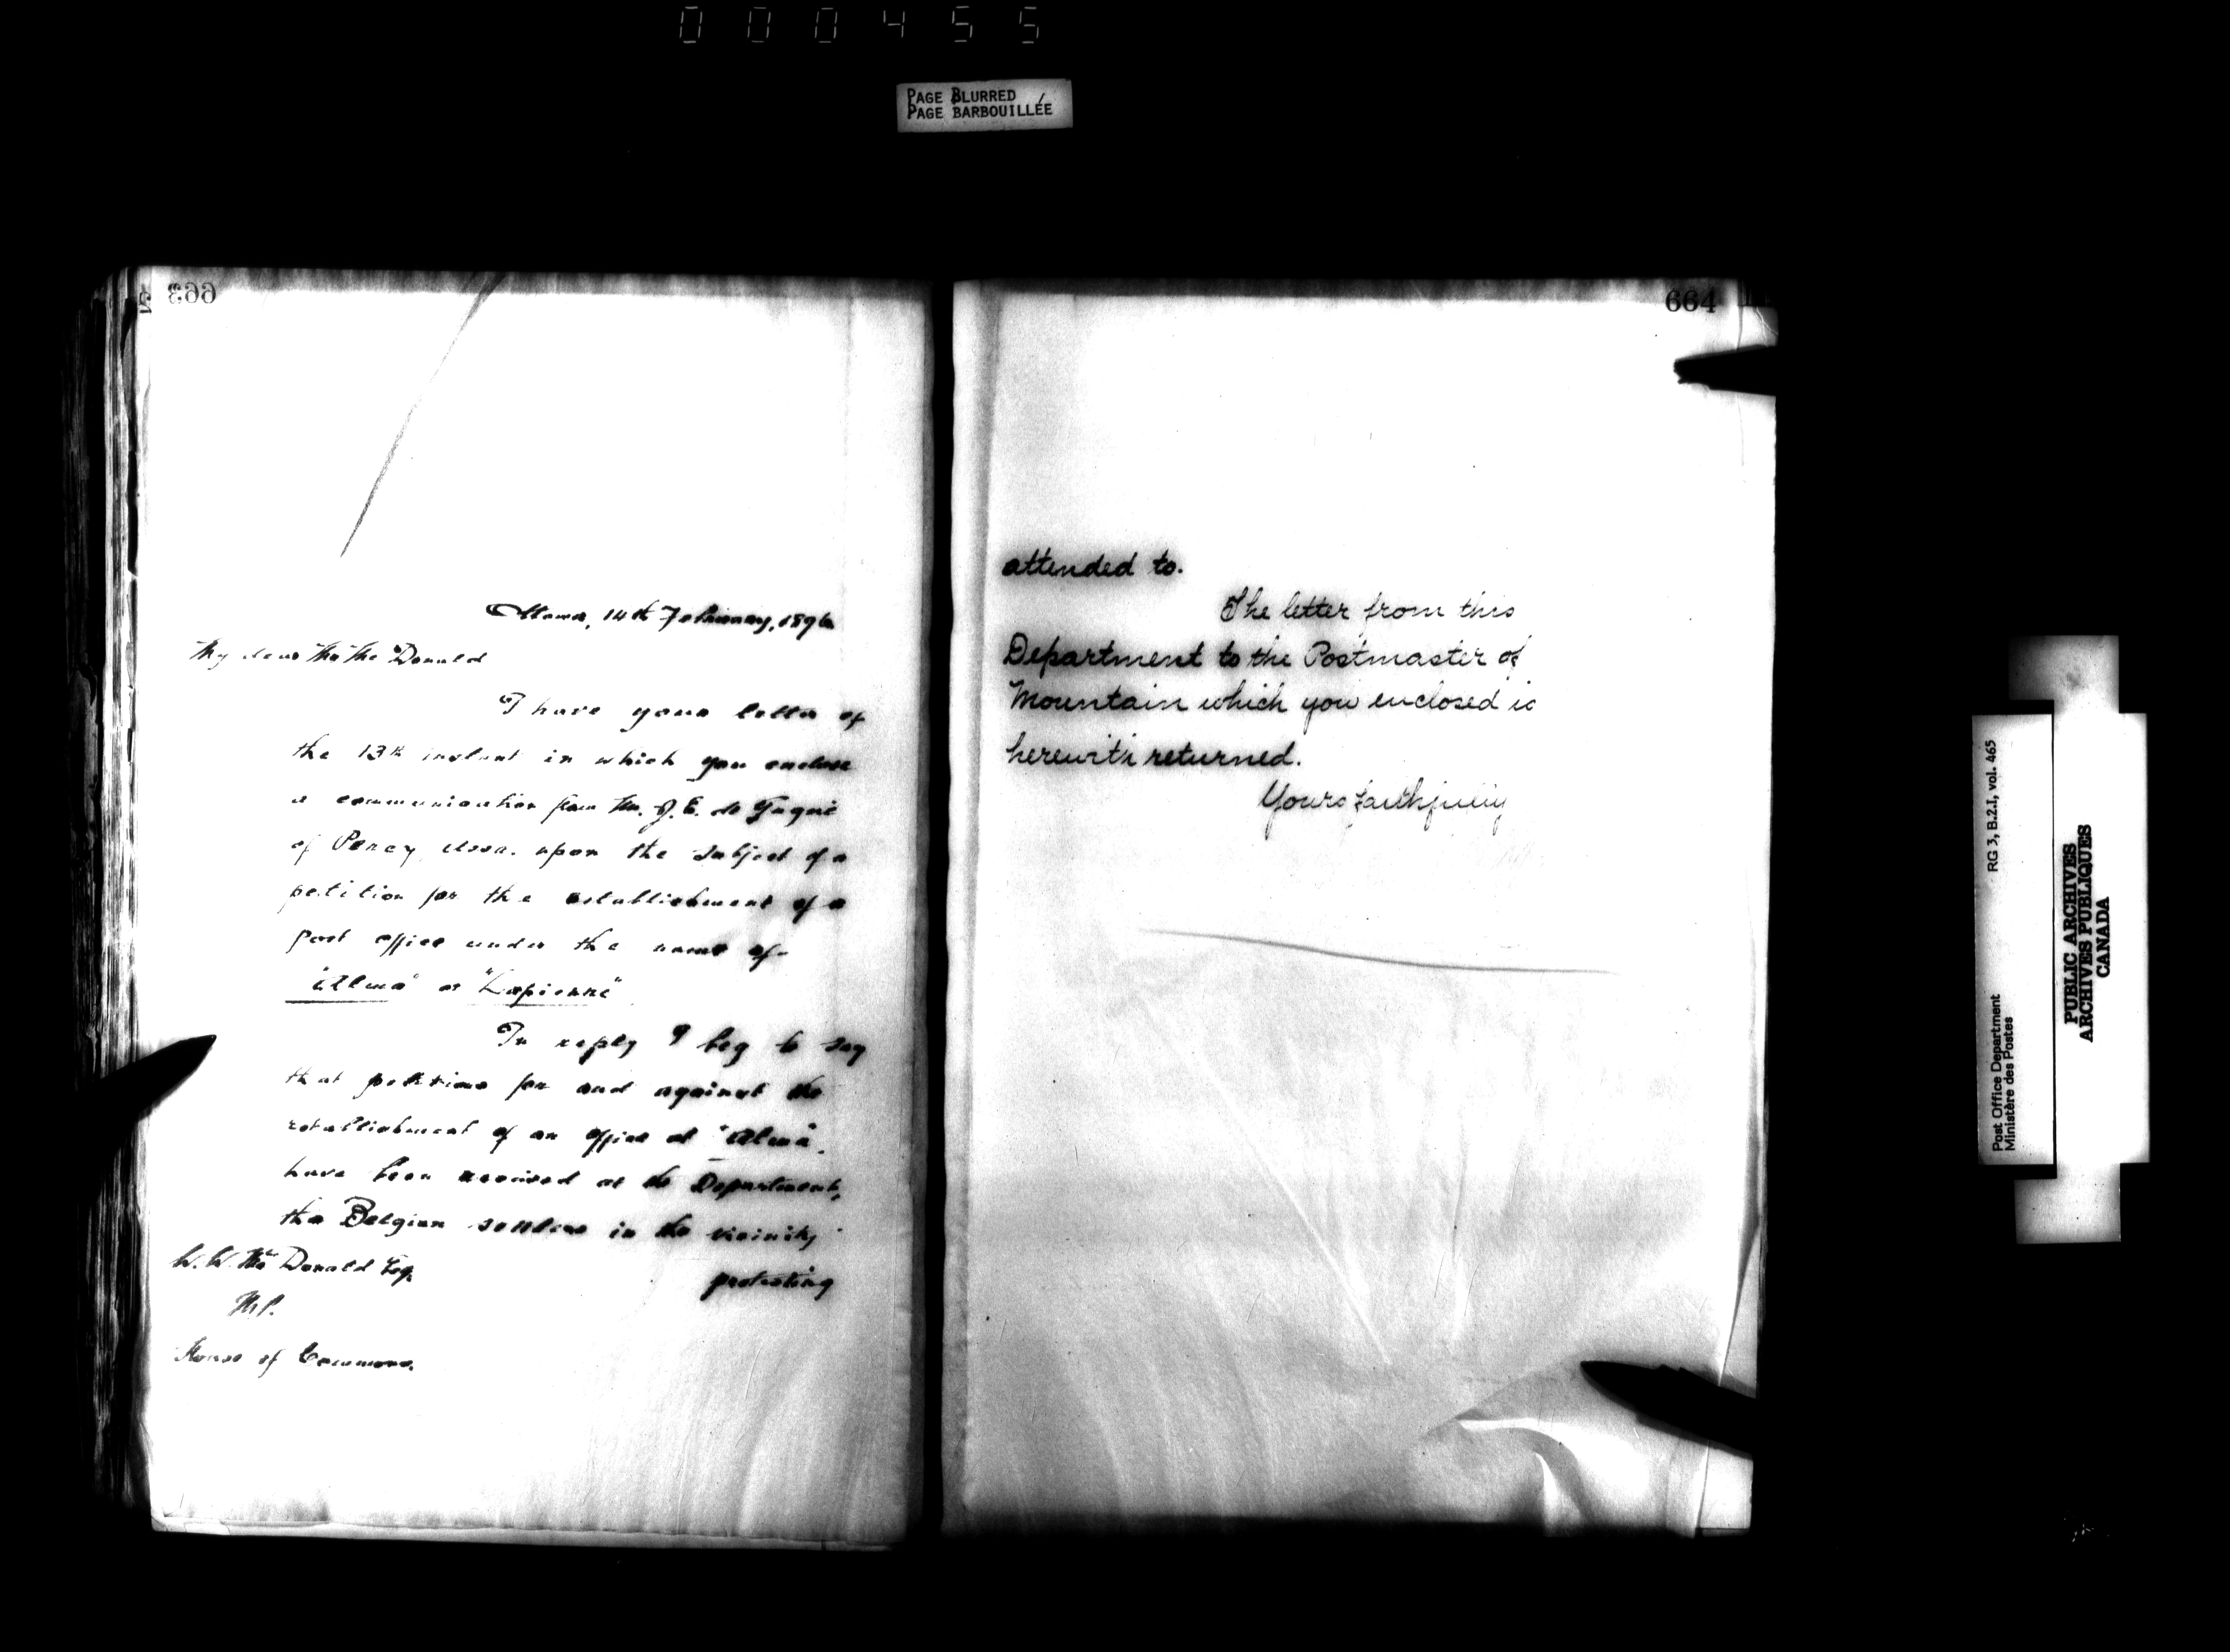 000455
PAGE BLURRED
PAGE BARBOUILLÉE
663
Ottawa, 14th February, 1896
My dear Mr Mc Donald
I have your letter of
the 13th instant in which you enclose
a communication from Mr. J. E. de
of Percy, Assa. upon the subject of a
petition for the establishment of a
post office under the name of
"Alma" or "Lapierre"
In reply I beg to say
that petitions for and against the
establishment of an office at "Alma".
have been received at the Department,
the Belgian settlers in the vicinity
protesting
W. W. Mc Donald Esq.
M.P.
House of Commons.
664
attended to.
The letter from this
Department to the Postmaster of
Mountain which you enclosed is
herewith returned.
Yours faithfully
RG 3, B.2.I, vol. 465
Post Office Department
Ministère des Postes
PUBLIC ARCHIVES
ARCHIVES PUBLIQUES
CANADA